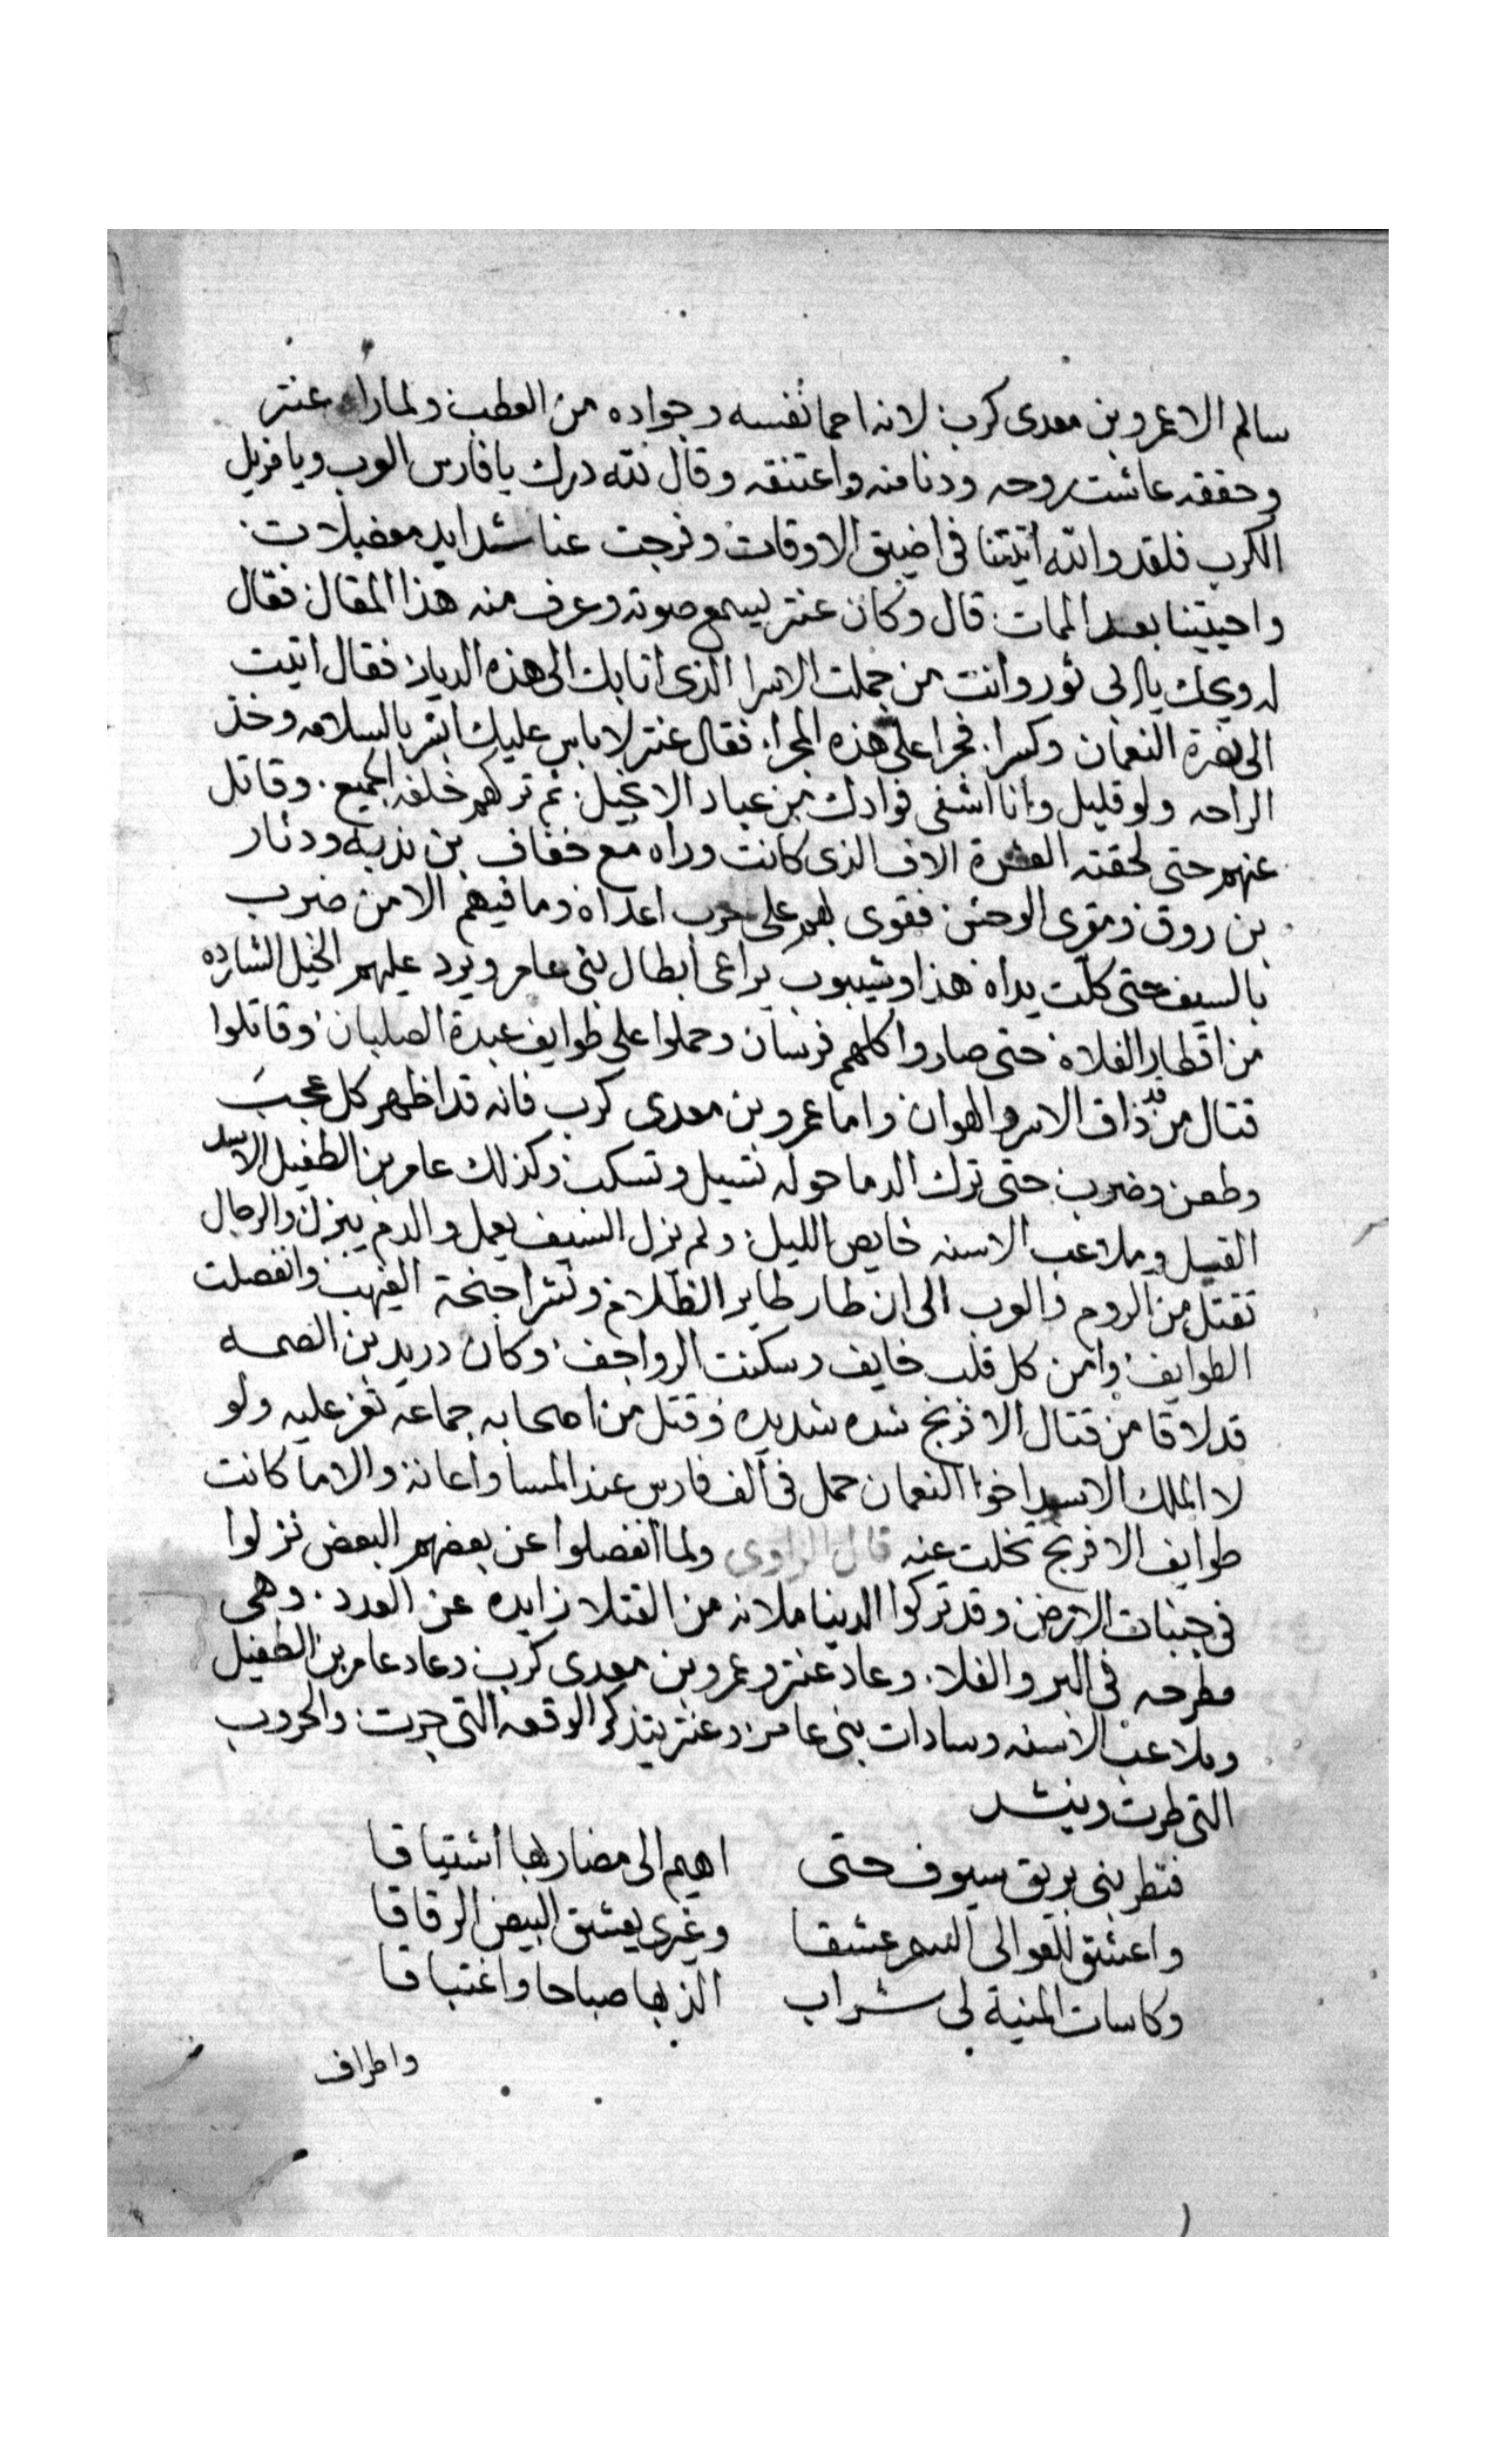 سالم الا عمرو بن معدى كرب لانه احما نفسه وجواده من العطب ولما راه عنتر
وحققه عاشت روحه ودنا منه واعتنقه وقال لله درك يا فارس العرب ويا مزيل
الكرب فلقد والله اتيتنا فى اضيق الاوقات وفرجت عنا شدايد معضلات
واحييتنا بعد الممات قال وكان عنتر ليسمع صوته وعرف منه هذا المقال فقال
له ويحك يا ابى ثور وانت من جملت الاسرا الذى اتا بك الى هذه الديار فقال اتيت
الى نصرة النعمان وكسرا فجرا على هذه المجرا فقال عنتر لا باس عليك ابشر بالسلامه وخذ
الراحه ولو قليل وانا اشفى فوادك من عباد الانجيل ثم تركهم خلفه الجميع وقاتل
عنهم حتى لحقته العشرة الاف الذى كانت وراه مع خفاف بن ندبه ودثار
بن روق ومقرى الوحش فقوى بهم على حرب اعداه وما فيهم الا من ضرب
بالسيف حتى كلت يداه هذا وشيبوب يراعى ابطال بنى عامر ويرد عليهم الخيل الشارده
من اقطار الفلاه حتى صاروا كلهم فرسان وحملوا على طوايف عبدة الصلبان وقاتلوا
قتال من قد ذاق الاسر والهوان واما عمرو بن معدى كرب فانه قد اظهر كل عجب
وطعن وضرب حتى ترك الدما حوله تسيل وتسكب وكذلك عامر بن الطفيل الاسد
القيل وملاعب الاسنه خايض الليل ولم يزل السيف يعمل والدم ينزل والرجال
تقتل من الروم والعرب الى ان طار طاير الظلام ونشر اجنحة الغيهب وانفصلت
الطوايف وامن كل قلب خايف وسكنت الرواجف وكان دريد بن الصمه
قد لاقا من قتال الافرنج شده شديده وقتل من اصحابه جماعه تعز عليه ولو
لا الملك الاسود اخو النعمان حمل فى الف فارس عند المسا واعانه والا ما كانت
طوايف الافرنج تخلت عنه قال الراوى ولما انفصلوا عن بعضهم البعض نزلوا
فى جنبات الارض وقد تركوا الدنيا ملانه من القتلا زايده عن العدد وهى
مطرحه فى البر والفلا وعاد عنتر وعمرو بن معدى كرب وعاد عامر بن الطفيل
وملاعب الاسنه وسادات بنى عامر وعنتر يتذكر الوقعه التى جرت والحروب
التى طرت وينشد
فتطربنى بريق سيوف حتى اهيم الى مضاربها اشتياقا
واعشق للعوالى السمر عشقا وغيرى يعشق البيض الرقاقا
وكاسات المنية لى شراب الذ بها صباحا واغتباقا
واطراف